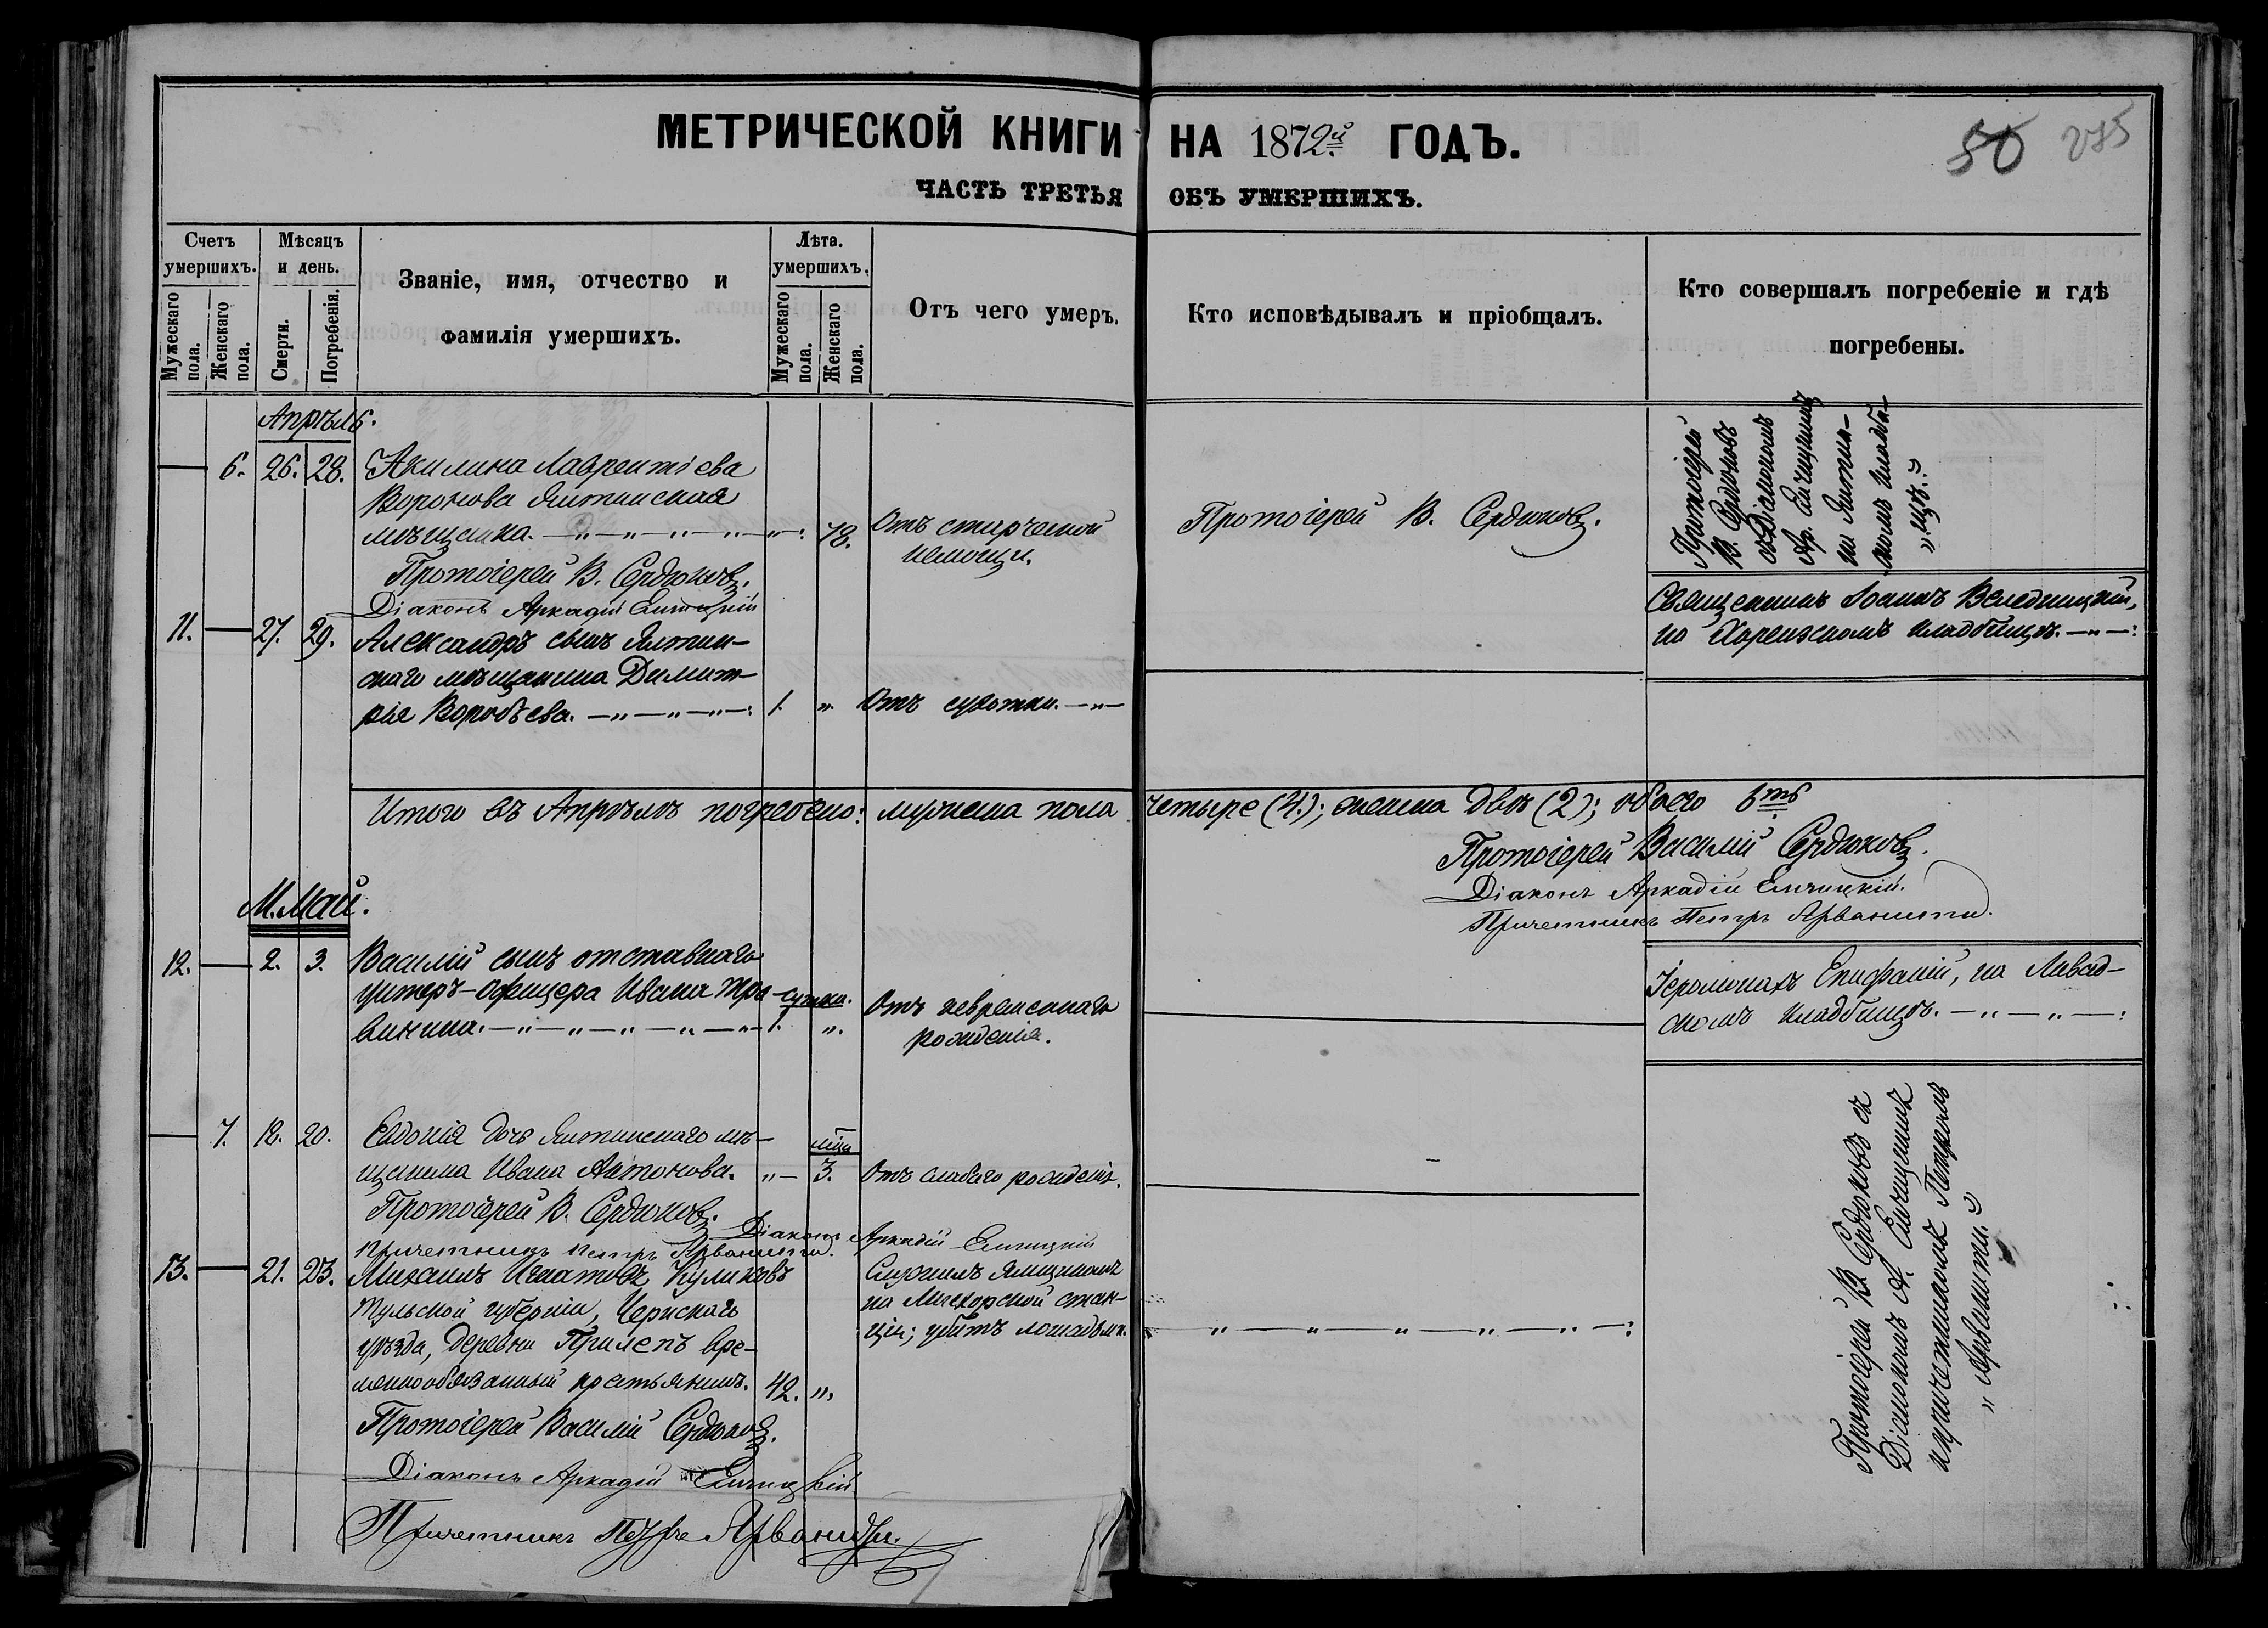 МЕТРИЧЕСКОЙ КНИГИ НА 1872й ГОДЪ.
50 285
ЧАСТЬ ТРЕТЬЯ ОБЪ УМЕРШИХЪ.
Счетъ умершихъ.
Мужескаго пола.
Женскаго пола.
Мѣсяцъ и день.
Смерти.
Погребенія.
Званіе, имя, отчество и
фамилія умершихъ.
Лѣта.
умершихъ.
Мужескаго пола.
Женскаго пола.
Отъ чего умеръ.
Кто исповѣдывалъ и пріобщалъ.
Кто совершалъ погребеніе и гдѣ
погребены.
Апрѣль.
6. 26. 28. Акилина Лаврентіева
Воронова Ялтинская
мѣщанка. 78. Отъ старческой
немощи.
Протоіерей В. Сердюковъ.
Протоіерей
В. Сердюковъ
съ Діакономъ
Ар. Епчицкимъ
на Ялтин-
скомъ кладби-
„щѣ."
Протоіерей В. Сердюковъ.
Діаконъ Аркадій Епчицкій
11. 27. 29. Александръ сынъ Ялтин-
скаго мѣщанина Димит-
рія Воробьева. 1. „ Отъ сухотки.
Священникъ Іоаннъ
на кладбищѣ.
Итого въ Апрѣлѣ погребено: мужеска пола четыре (4.); женска двѣ (2); обоего 6ть
Протоіерей Василій Сердюковъ.
Діаконъ Аркадій Епчицкій.
Причетникъ Петръ Арванити.
М. Май.
12. 2. 3. Василій сынъ отставнаго
унтеръ-офицера Ивана Тра-
винина. сутки. 1. „.
Отъ невременнаго
рожденія.
Іеромонахъ Епифаній, на Ливад-
скомъ кладбищѣ.
7. 18. 20. Евдокія дочь Ялтинскаго мѣ-
щанина Ивана Антонова. „ мца 3. Отъ слабаго рожденія.
Протоіерей В. Сердюковъ. Діаконъ Аркадій Епчицкій
Причетникъ Петръ Арванити.
13. 21. 23. Михаилъ Игнатовъ Куликовъ
Тульской губерніи, Чернскаго
уѣзда, деревни Прилепъ вре-
меннообязанный крестьянинъ. 42. „.
Служилъ ямщикомъ
на Мисхорской стан-
ціи; убитъ лошадьми.
Протоіерей В. Сердюковъ съ
Діакономъ А. Епчицкимъ
и причетникомъ Петромъ
„ Арванити."
Протоіерей Василій Сердюковъ.
Діаконъ Аркадій Епчицкій
Причетникъ Петръ Арванити.